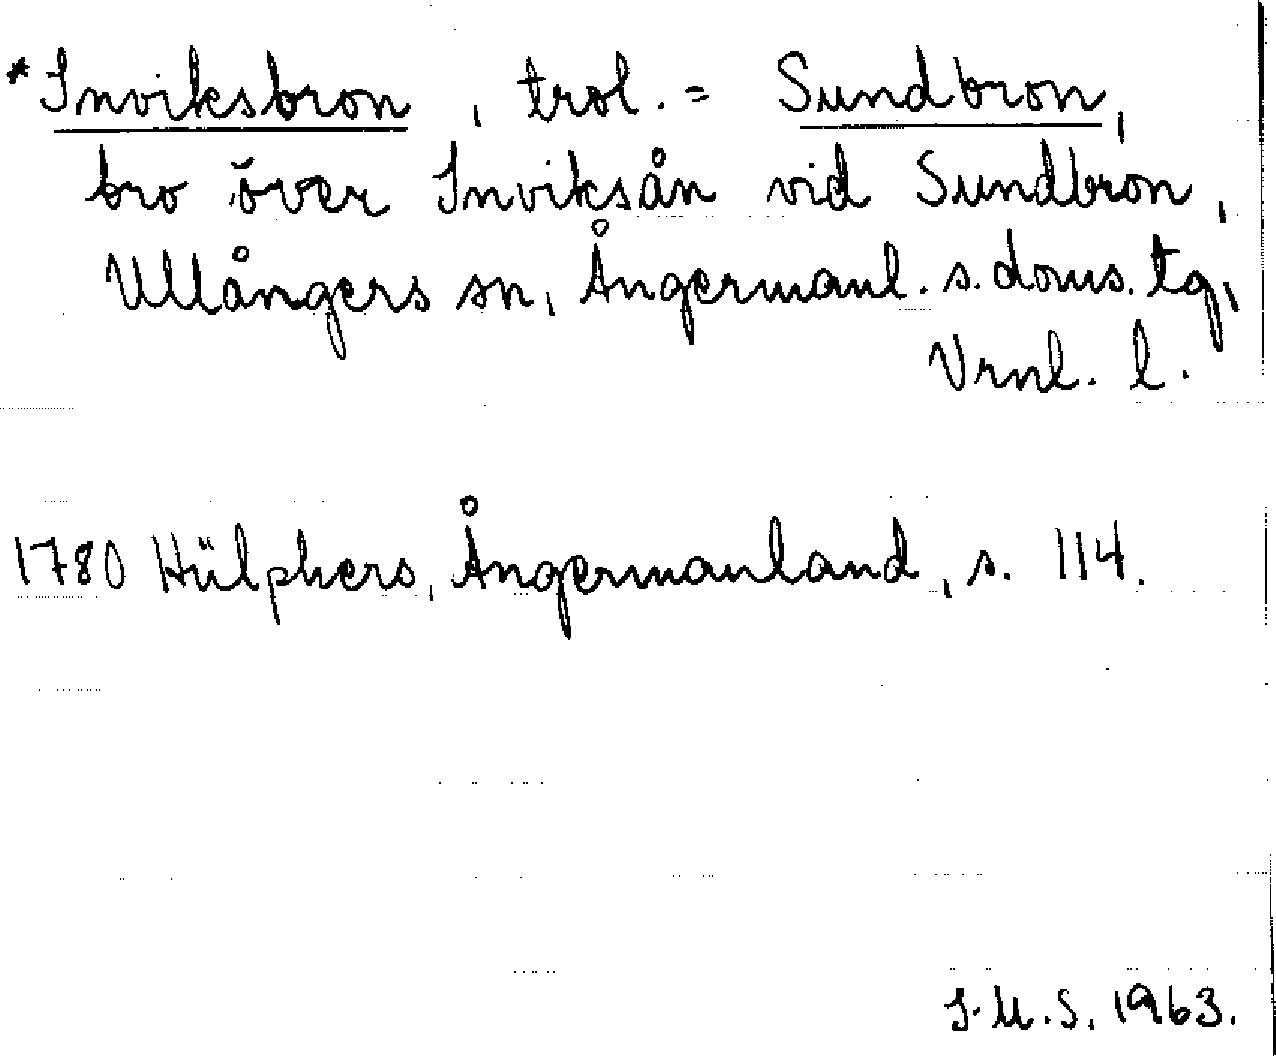 *Inviksbron, trol. = Sundbron,
bro över Inviksån vid Sundbron,
Ullångers sn, Ångermanl. s. doms. tg,
Vrnl. l.
1780 Hülphers, Ångermanland, s. 114.
J.U.S. 1963.